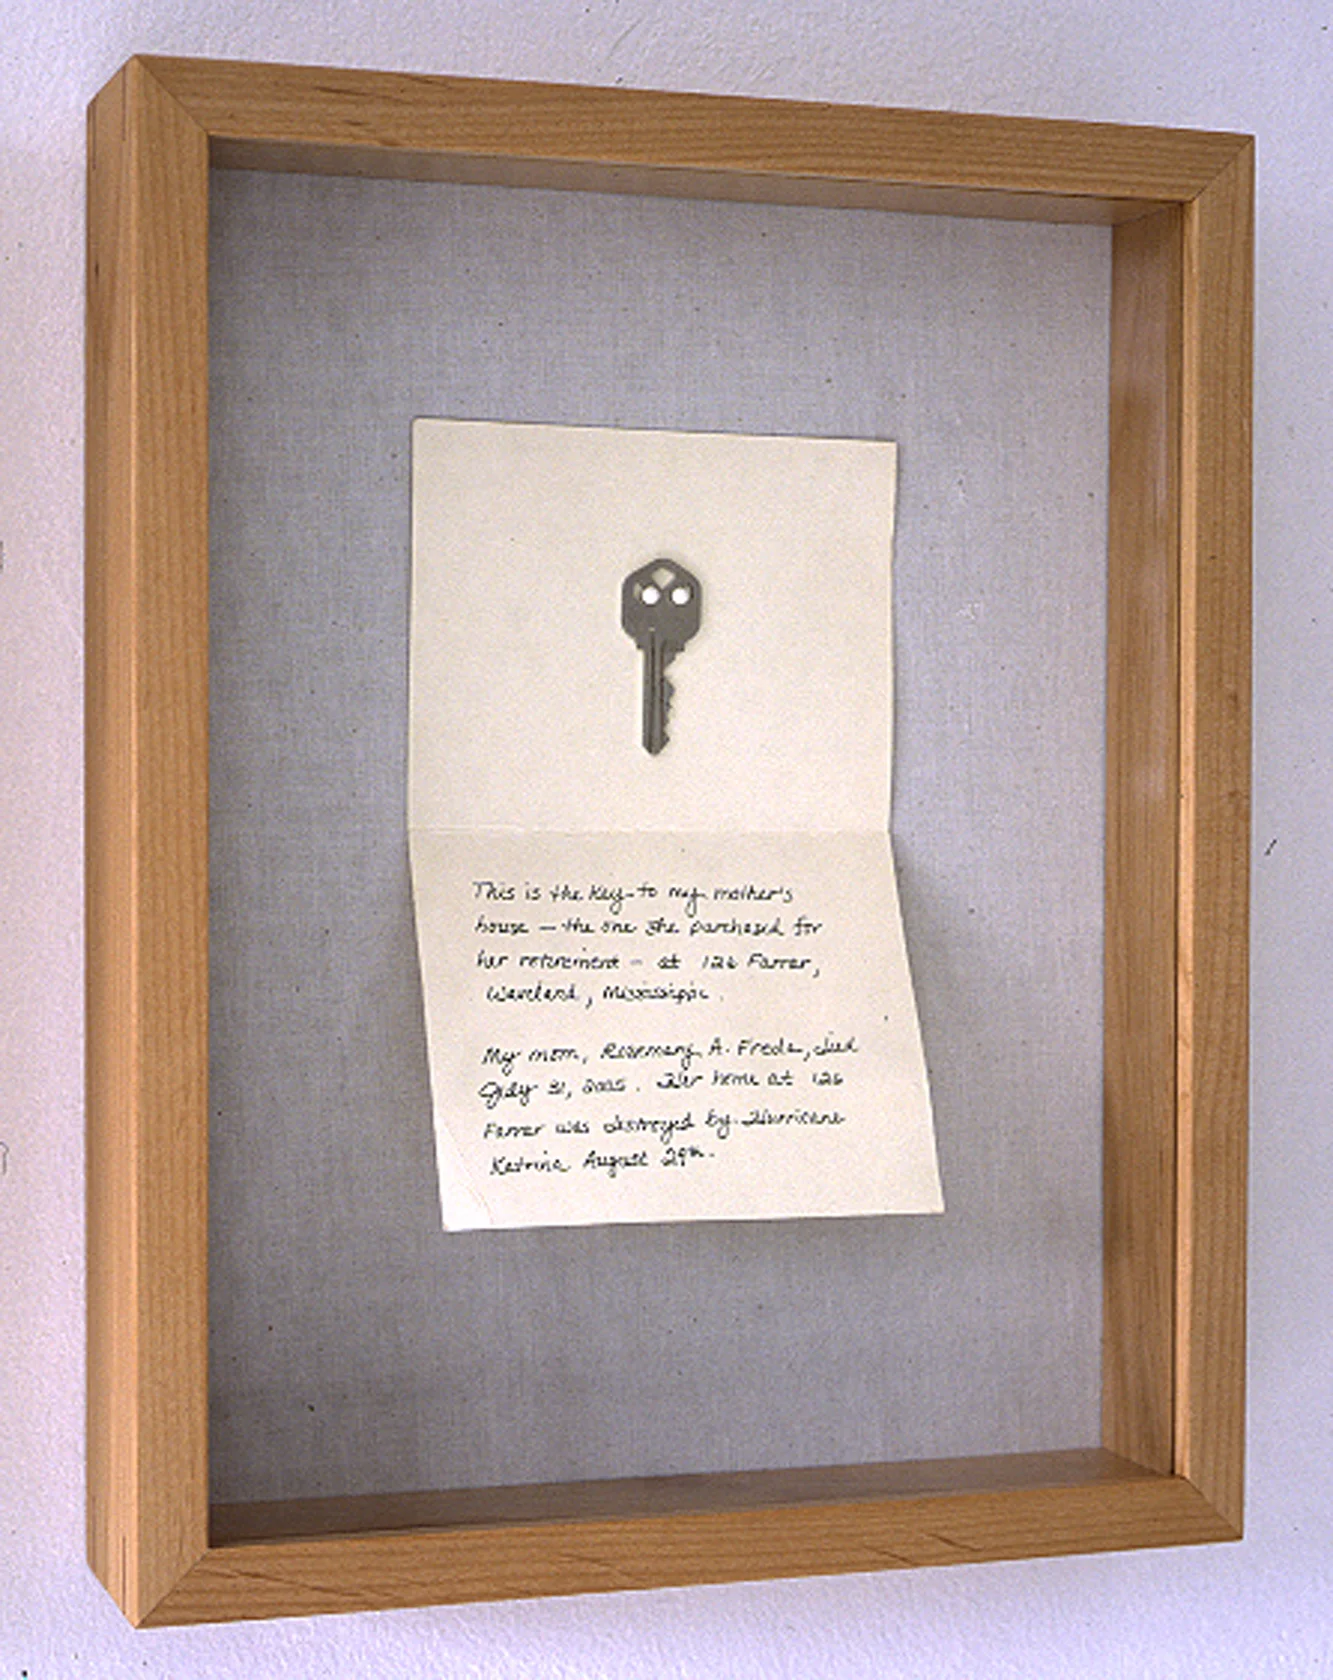 This is the key to my mother's
house — the one she purchased for
her retirement — at 126 Farrar,
Waveland, Mississippi.
My mom, Rosemary A. Freda, died
July 31, 2005. Her home at 126
Farrar was destroyed by Hurricane
Katrina August 29th.